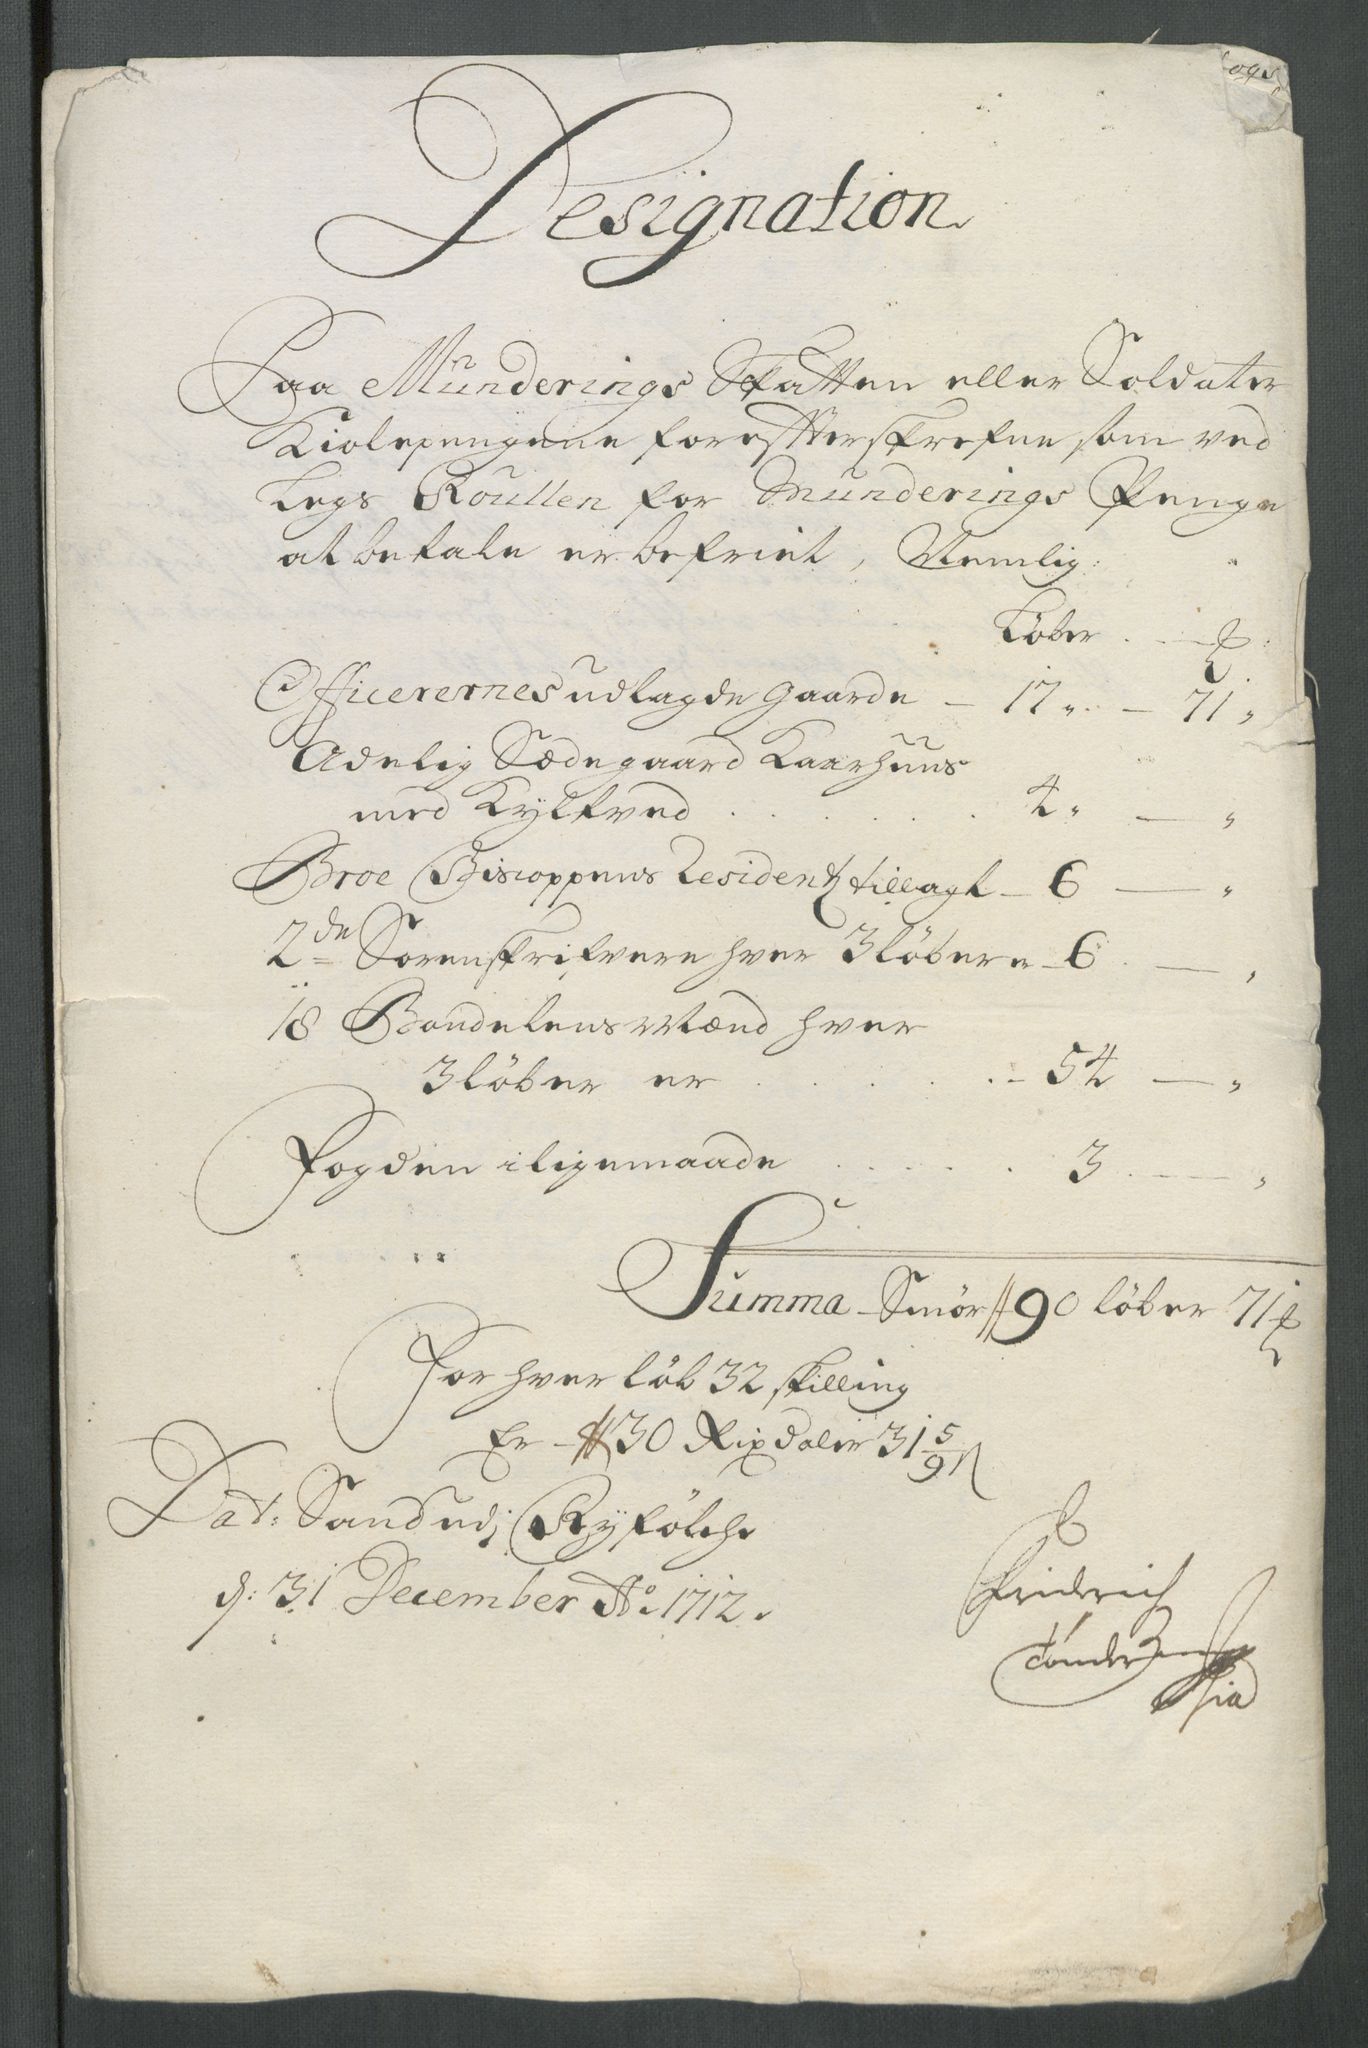 Designation
Paa Münderings Skatten eller Soldater
Kiolepengene for effterskrefne som ved
Legs Roullen for Munderings Penge
at betale er befriet, Nemlig:
Løber
Officerernes udlagde Gaarde – 17 „ – 71 „
Adelig Sædegaard Kaarhuus
med Kylfved . . . . . . 4 „ – „
Broe Biscoppens Residentz tillagt – 6 – „
2de Sorenskrifvere hver 3 løber er – 6 – „
18 Bondelensmænd hver
3 løber er . . . . . – 54 – „
Fogden i ligemaade . . . . . . 3 – „
Summa – Smør // 90 løber 71
For hver løb 32 skilling
Er – 30 Rixdaler 31 5/9
Dat: Sand udj Ryfølche
d: 31 December Ao 1712.
Friderich